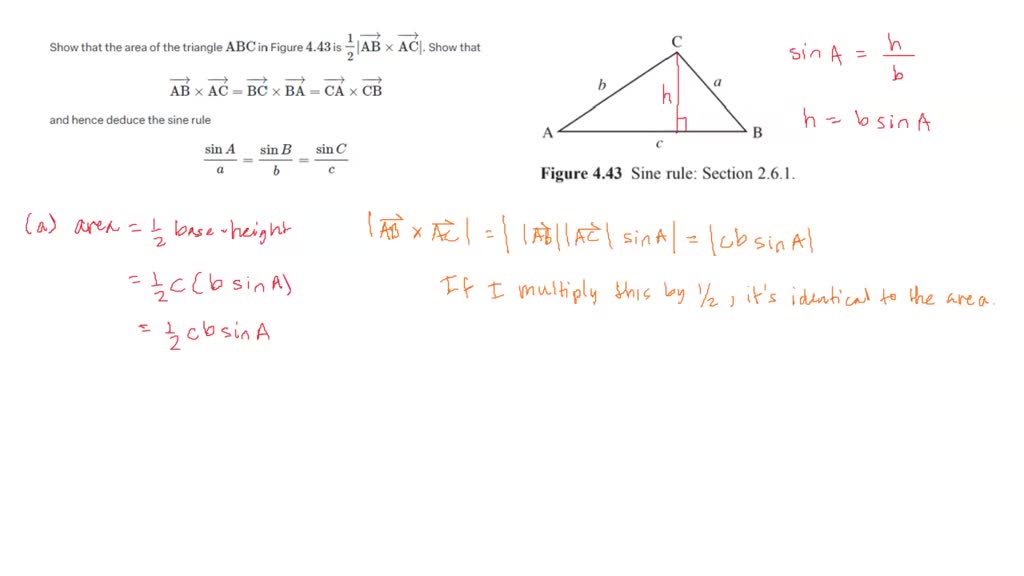 Show that the area of the triangle ABC in Figure 4.43 is $\frac{1}{2}|\overrightarrow{AB} \times \overrightarrow{AC}|$. Show that
$\overrightarrow{AB} \times \overrightarrow{AC} = \overrightarrow{BC} \times \overrightarrow{BA} = \overrightarrow{CA} \times \overrightarrow{CB}$
and hence deduce the sine rule
$\frac{\sin A}{a} = \frac{\sin B}{b} = \frac{\sin C}{c}$
C
b
h
a
A
B
c
Figure 4.43 Sine rule: Section 2.6.1.
$\sin A = \frac{h}{b}$
$h = b \sin A$
(a) area = $\frac{1}{2}$ base · height
= $\frac{1}{2} c (b \sin A)$
= $\frac{1}{2} cb \sin A$
$|\overrightarrow{AB} \times \overrightarrow{AC}| = | |\overrightarrow{AB}| |\overrightarrow{AC}| \sin A| = |cb \sin A|$
If I multiply this by 1/2, it's identical to the area.